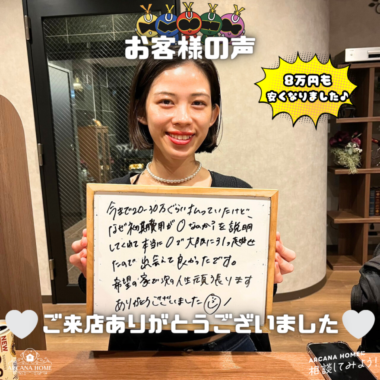 お客様の声
8万円も
安くなりました♪
今まで20~30万ぐらい払っていたけど、
なぜ初期費用が0なのか?を説明
してくれて本当に0で大阪に引っ越せ
たので出会えて良かったです。
希望の家が次の人生頑張ります
ありがとうございました
ご来店ありがとうございました
ARCANA HOME
ARCANA HOMEに
相談してみよう!